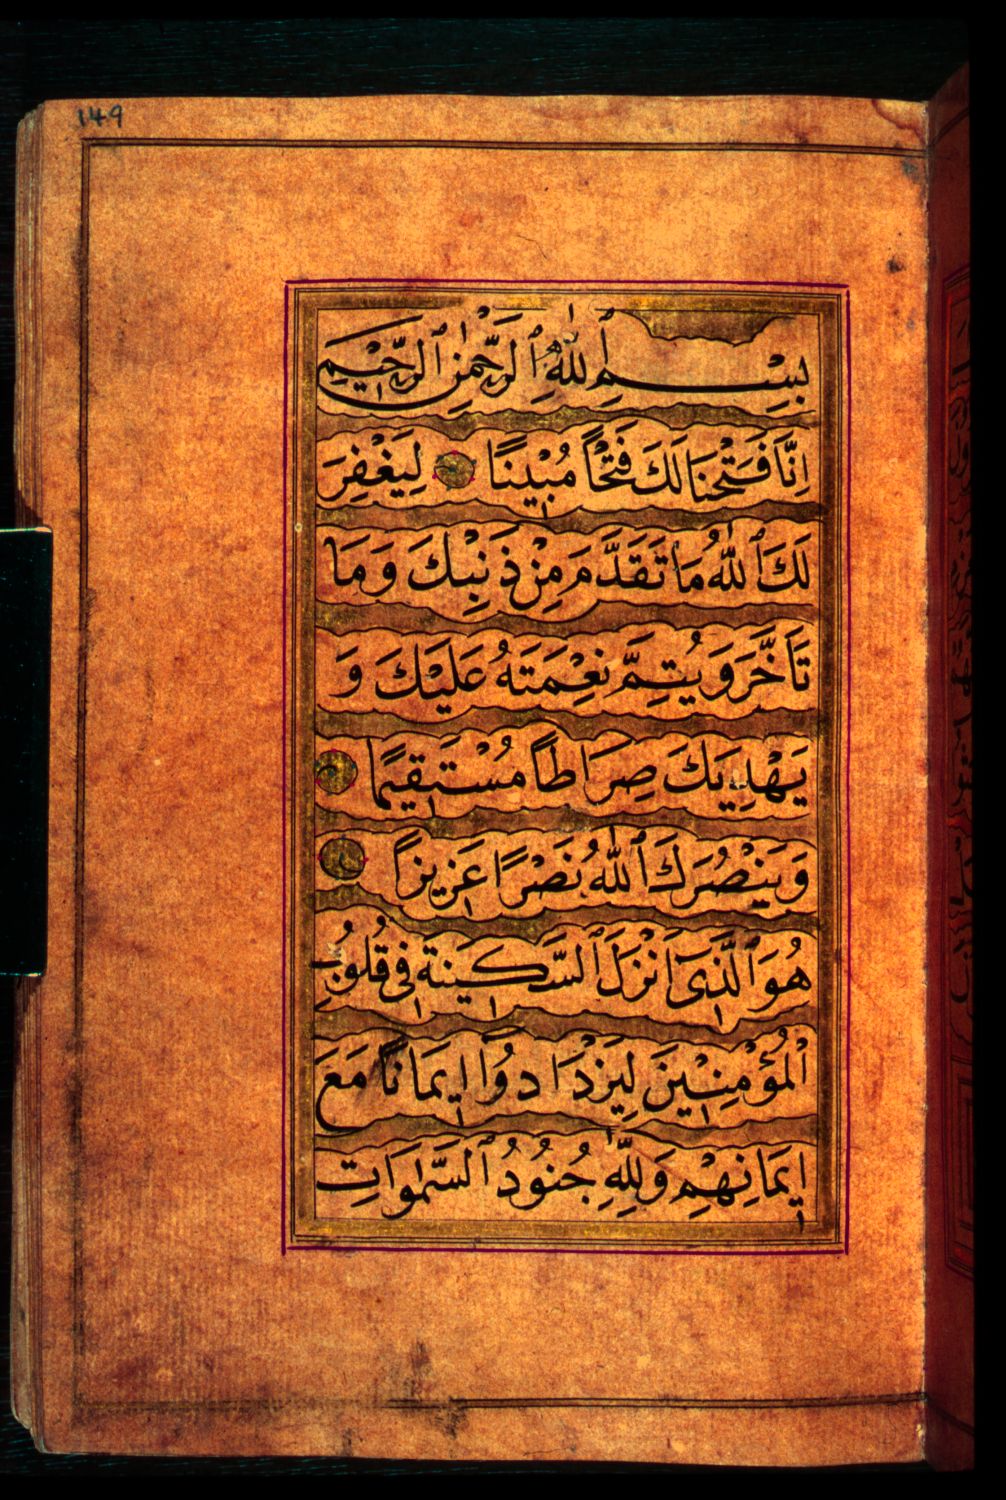 149
بِسْمِ ٱللّٰهِ ٱلرَّحْمٰنِ ٱلرَّحِيْمِ
اِنَّا فَتَحْنَا لَكَ فَتْحًا مُبِيْنًا لِيَغْفِرَ
لَكَ ٱللّٰهُ مَا تَقَدَّمَ مِنْ ذَنْبِكَ وَمَا
تَأَخَّرَ وَيُتِمَّ نِعْمَتَهُ عَلَيْكَ وَ
يَهْدِيَكَ صِرَاطًا مُسْتَقِيمًا
وَيَنْصُرَكَ ٱللّٰهُ نَصْرًا عَزِيزًا
هُوَ ٱلَّذِىٓ اَنْزَلَ ٱلسَّكِينَةَ فِى قُلُوبِ
ٱلْمُؤْمِنِيْنَ لِيَزْدَادُوٓا اِيمَانًا مَعَ
اِيمَانِهِمْ وَلِلّٰهِ جُنُودُ ٱلسَّمٰوَاتِ